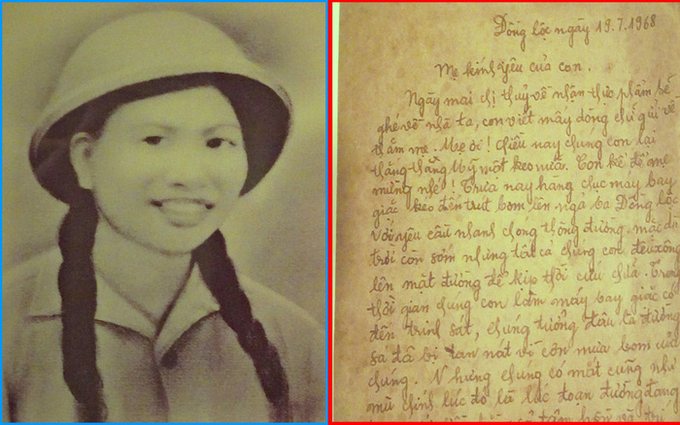 Đồng lộc ngày 19.7.1968
Mẹ kính yêu của con.
Ngày mai chị thuỷ về nhận thực phẩm sẽ
ghé về nhà ta, con viết mấy dòng chữ gửi về
thăm mẹ. Mẹ ơi! chiều nay chúng con lại
thắng thằng Mỹ một keo nữa. Con kể để mẹ
mừng nhé! Trưa nay hàng chục máy bay
giặc kéo đến trút bom lên ngã ba Đồng lộc
Với yêu cầu nhanh chóng thông đường, mặc dù
trời còn sớm nhưng tất cả chúng con đều xông
lên mặt đường để kịp thời cứu chữa. Trong
thời gian chúng con làm máy bay giặc có
đến trinh sát, chúng tưởng đâu là đường
sá đã bị tan nát vì cơn mưa bom của
chúng. Nhưng chúng có mắt cũng như
mù chính lúc đó là lúc đoạn đường đang